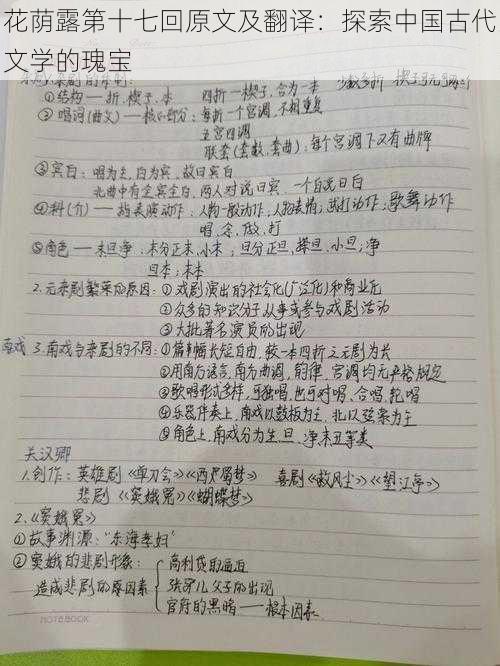 花荫露第十七回原文及翻译：探索中国古代
文学的瑰宝
①结构——折、楔子、本 四折一楔子，合为一本 少数多折
②唱词(曲文)——核心部分：每折一个宫调，不相重复
五宫四调
联套(套数、套曲)：每个宫调下又有曲牌
③宾白：唱为主，白为宾，故曰宾白
北曲中有全宾全白，两人对说曰宾，一个自说曰白
④科(介)——指表演动作：人物一般动作，人物表情，武打动作；歌舞动作
唱、念、做、打
⑤角色——末旦净：末分正末、小末；旦分正旦、小旦；净
2.元杂剧繁荣的原因：①戏剧演出的社会化(广泛化)和商业化
②众多的知识分子从事或参与戏剧活动
③大批著名演员的出现
南戏 3.南戏与杂剧的不同：①篇幅长短自由，较一本四折之元剧为长
②用南方语言、南方曲调，韵律、宫调均无严格规定
③歌唱形式多样，可独唱，也可对唱、合唱、轮唱
④乐器伴奏上，南戏以鼓板为主，北以弦索为主
⑤角色上，南戏分为生、旦、净末丑等类
关汉卿
1.创作：英雄剧《单刀会》《西蜀梦》 喜剧《救风尘》《望江亭》
悲剧《窦娥冤》《蝴蝶梦》
2.《窦娥冤》
①故事渊源：“东海孝妇”
②窦娥的悲剧形象： 高利贷的逼迫
造成悲剧的原因素 张驴儿父子的出现
官府的黑暗——根本因素
NOTEBOOK